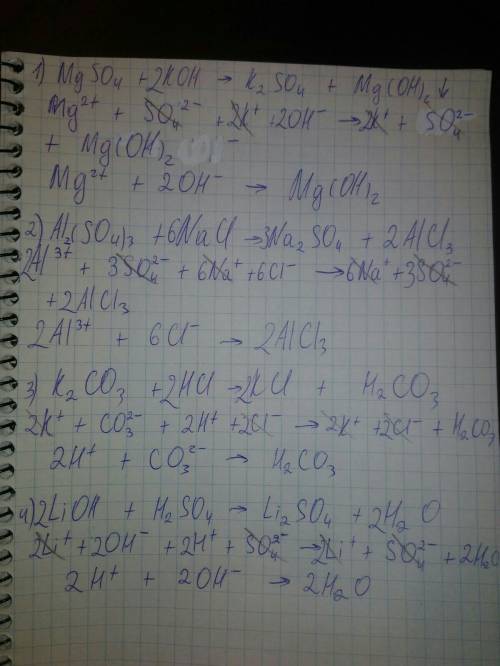 1) MgSO₄ + 2KOH → K₂SO₄ + Mg(OH)₂ ↓
Mg²⁺ + SO₄²⁻ + 2K⁺ + 2OH⁻ → 2K⁺ + SO₄²⁻
+ Mg(OH)₂
Mg²⁺ + 2OH⁻ → Mg(OH)₂
2) Al₂(SO₄)₃ + 6NaCl → 3Na₂SO₄ + 2AlCl₃
2Al³⁺ + 3SO₄²⁻ + 6Na⁺ + 6Cl⁻ → 6Na⁺ + 3SO₄²⁻
+ 2AlCl₃
2Al³⁺ + 6Cl⁻ → 2AlCl₃
3) K₂CO₃ + 2HCl → 2KCl + H₂CO₃
2K⁺ + CO₃²⁻ + 2H⁺ + 2Cl⁻ → 2K⁺ + 2Cl⁻ + H₂CO₃
2H⁺ + CO₃²⁻ → H₂CO₃
4) 2LiOH + H₂SO₄ → Li₂SO₄ + 2H₂O
2Li⁺ + 2OH⁻ + 2H⁺ + SO₄²⁻ → 2Li⁺ + SO₄²⁻ + 2H₂O
2H⁺ + 2OH⁻ → 2H₂O